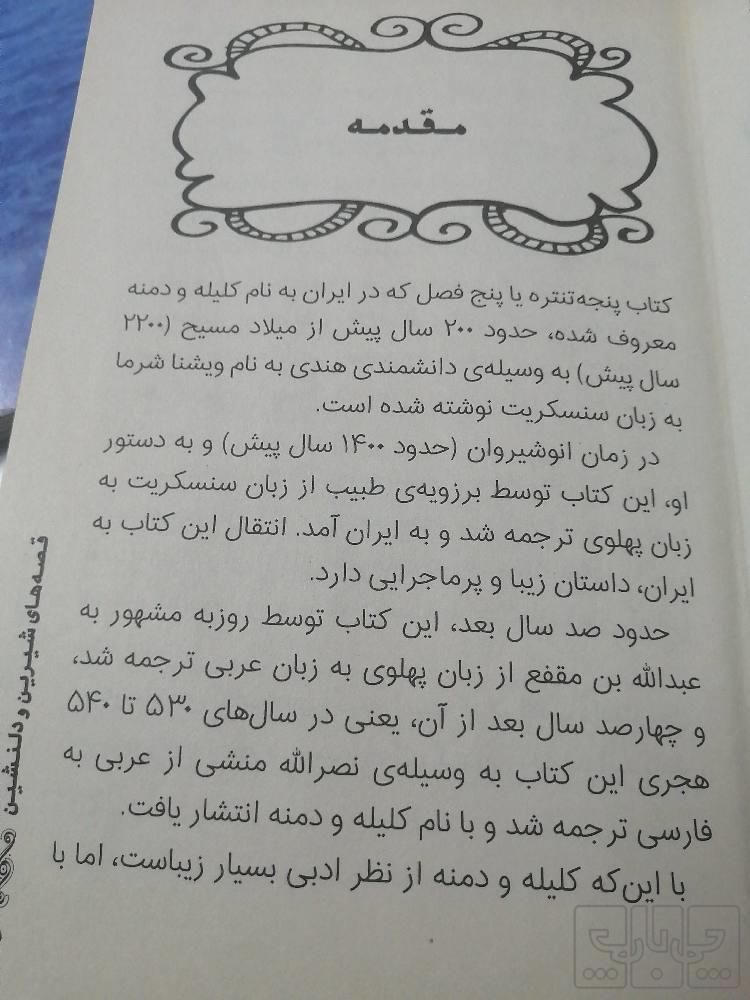 مقدمه
کتاب پنجه‌تنتره یا پنج فصل که در ایران به نام کلیله و دمنه
معروف شده، حدود ۲۰۰ سال پیش از میلاد مسیح (۲۲۰۰
سال پیش) به وسیله‌ی دانشمندی هندی به نام ویشنا شرما
به زبان سنسکریت نوشته شده است.
در زمان انوشیروان (حدود ۱۴۰۰ سال پیش) و به دستور
او، این کتاب توسط برزویه‌ی طبیب از زبان سنسکریت به
زبان پهلوی ترجمه شد و به ایران آمد. انتقال این کتاب به
ایران، داستان زیبا و پرماجرایی دارد.
حدود صد سال بعد، این کتاب توسط روزبه مشهور به
عبدالله بن مقفع از زبان پهلوی به زبان عربی ترجمه شد،
و چهارصد سال بعد از آن، یعنی در سال‌های ۵۳۰ تا ۵۴۰
هجری این کتاب به وسیله‌ی نصرالله منشی از عربی به
فارسی ترجمه شد و با نام کلیله و دمنه انتشار یافت.
با این‌که کلیله و دمنه از نظر ادبی بسیار زیباست، اما با
قصه‌های شیرین و دلنشین